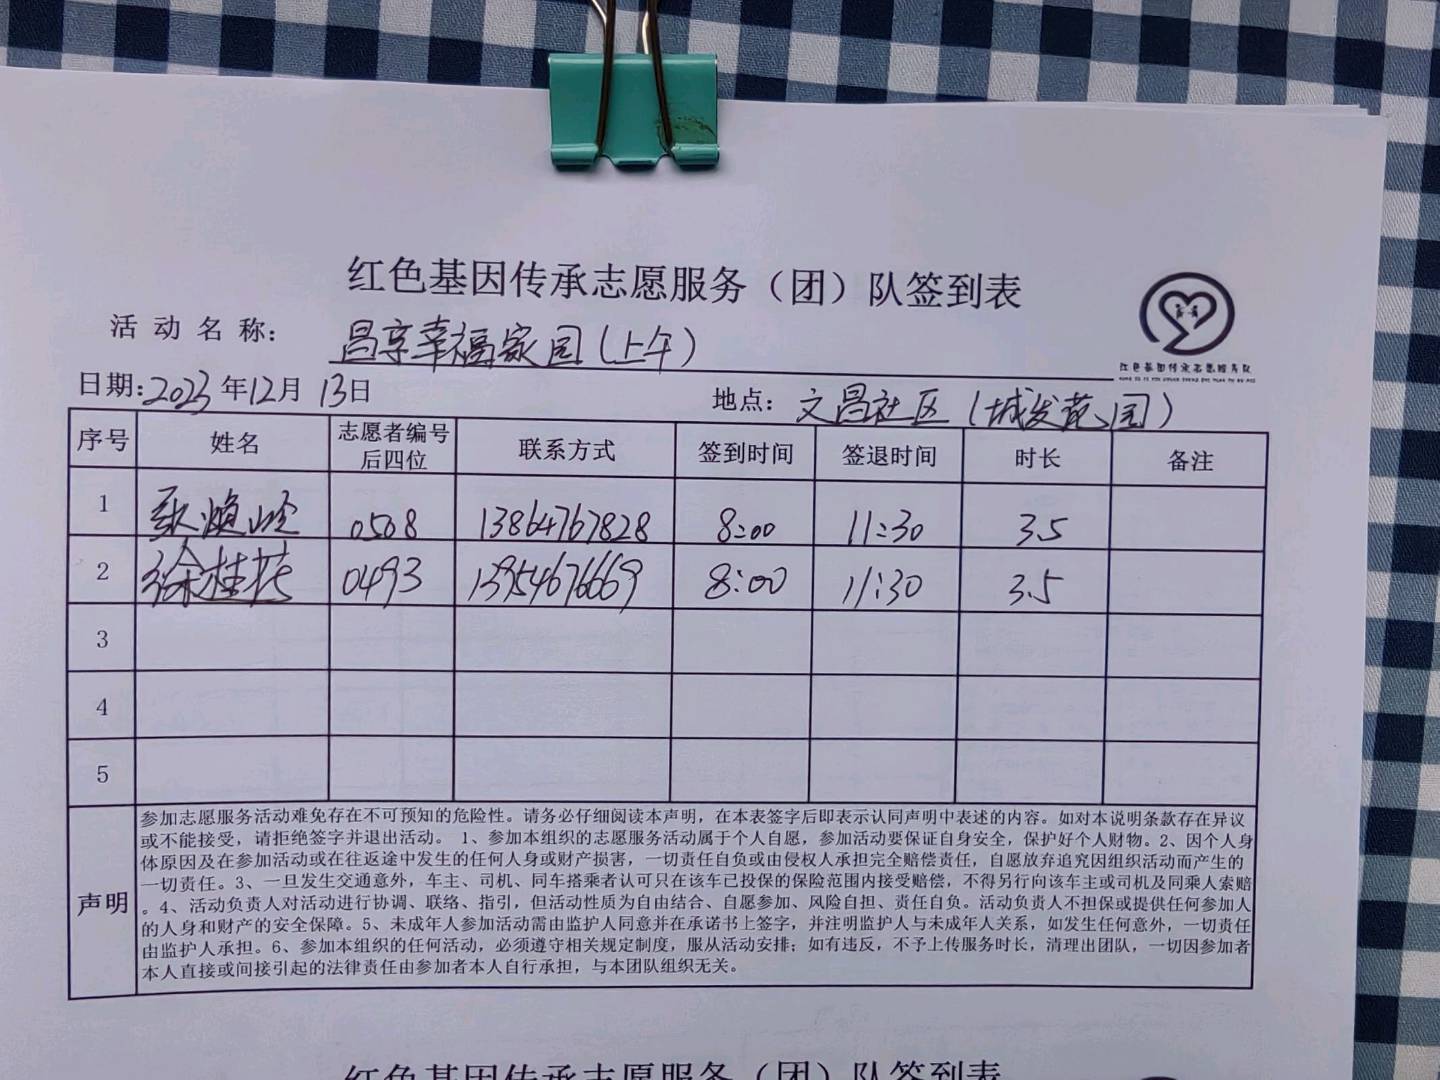 红色基因传承志愿服务（团）队签到表
活动名称： 昌享幸福家园（上午）
红色基因传承志愿服务队
日期：2023年12月13日 地点：文昌社区（城发苑园）
序号 姓名 志愿者编号后四位 联系方式 签到时间 签退时间 时长 备注
1 耿焕岭 0508 13864767828 8:00 11:30 3.5
2 徐桂花 0493 13954676669 8:00 11:30 3.5
3
4
5
声明
参加志愿服务活动难免存在不可预知的危险性。请务必仔细阅读本声明，在本表签字后即表示认同声明中表述的内容。如对本说明条款存在异议
或不能接受，请拒绝签字并退出活动。 1、参加本组织的志愿服务活动属于个人自愿，参加活动要保证自身安全，保护好个人财物。2、因个人身
体原因及在参加活动或在往返途中发生的任何人身或财产损害，一切责任自负或由侵权人承担完全赔偿责任，自愿放弃追究因组织活动而产生的
一切责任。3、一旦发生交通意外，车主、司机、同车搭乘者认可只在该车已投保的保险范围内接受赔偿，不得另行向该车主或司机及同乘人索赔
。4、活动负责人对活动进行协调、联络、指引，但活动性质为自由结合、自愿参加、风险自担、责任自负。活动负责人不担保或提供任何参加人
的人身和财产的安全保障。5、未成年人参加活动需由监护人同意并在承诺书上签字，并注明监护人与未成年人关系，如发生任何意外，一切责任
由监护人承担。6、参加本组织的任何活动，必须遵守相关规定制度，服从活动安排；如有违反，不予上传服务时长，清理出团队，一切因参加者
本人直接或间接引起的法律责任由参加者本人自行承担，与本团队组织无关。
红色基因传承志愿服务（团）队签到表